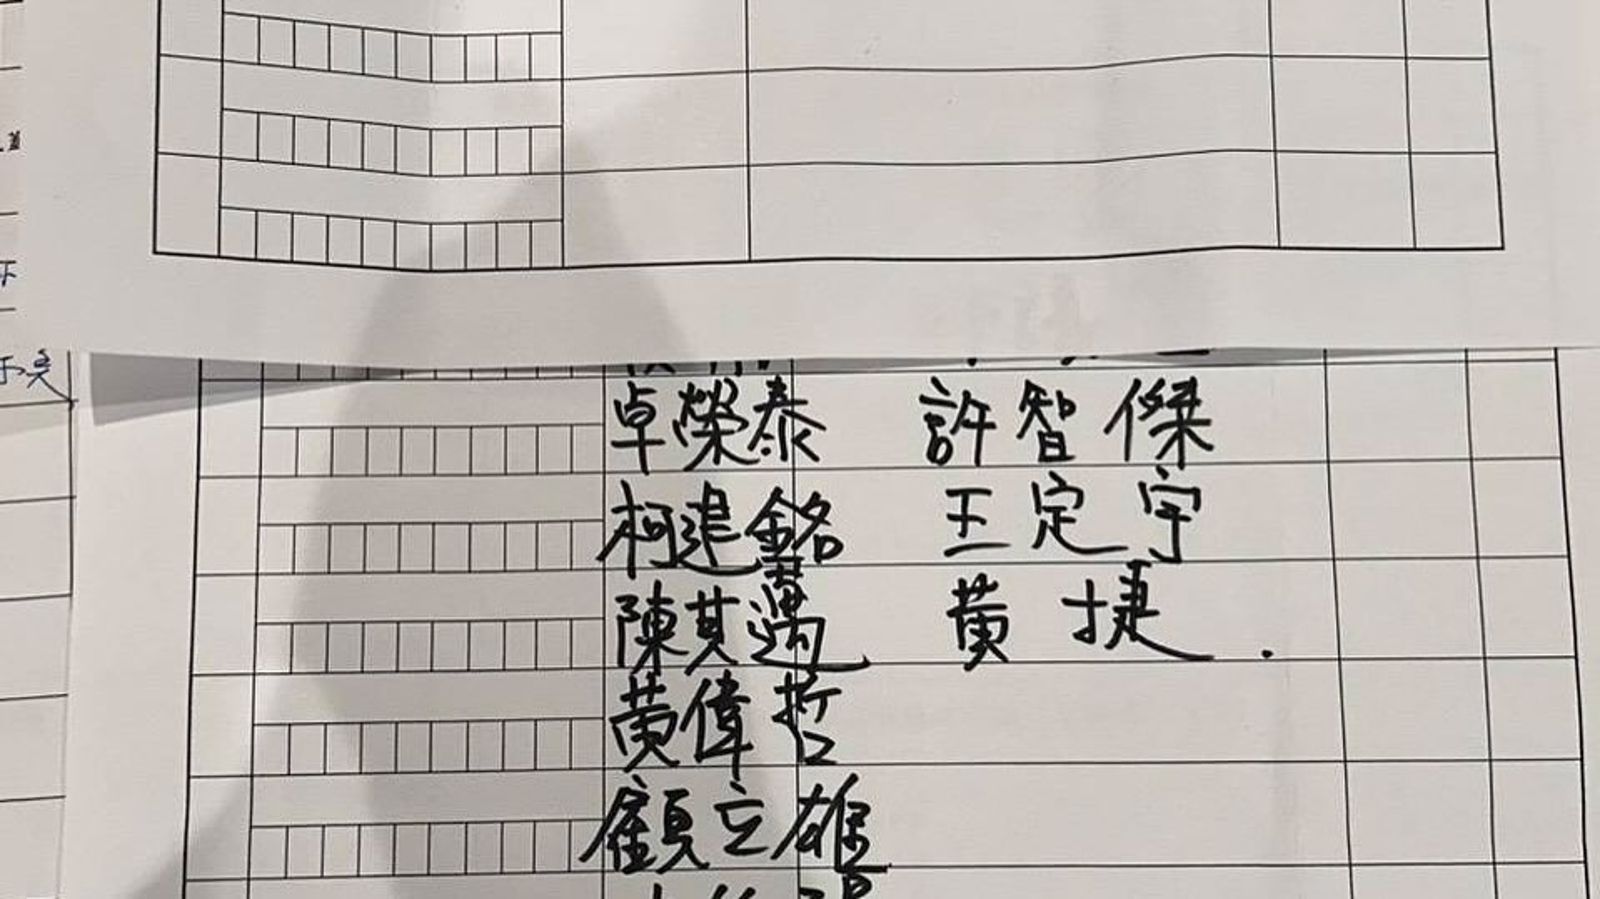 卓榮泰 許智傑
柯建銘 王定宇
陳其邁 黃捷.
黃偉哲
顧立雄